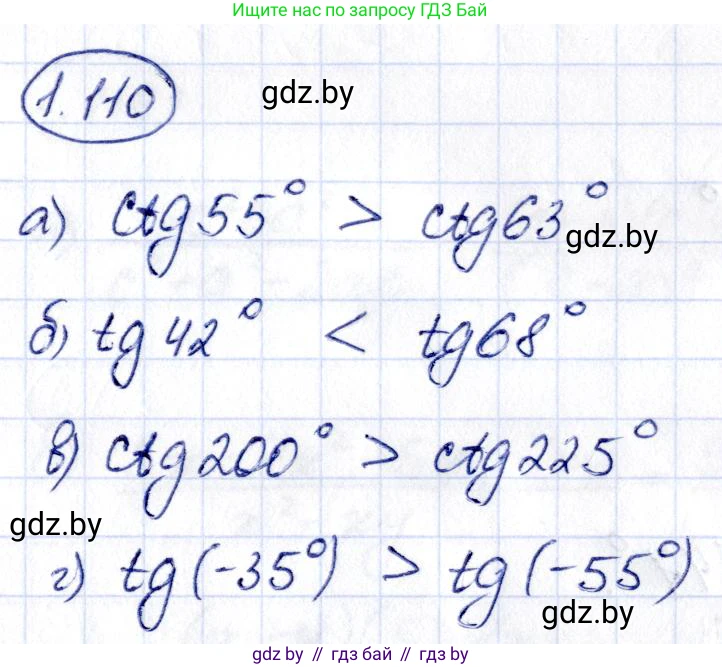 Ищите нас по запросу ГДЗ Бай
1.110
gdz.by
а) ctg 55° > ctg 63°
gdz.by
б) tg 42° < tg 68°
в) ctg 200° > ctg 225°
gdz.by
г) tg (-35°) > tg (-55°)
gdz.by
gdz.by // гдз бай // gdz.by